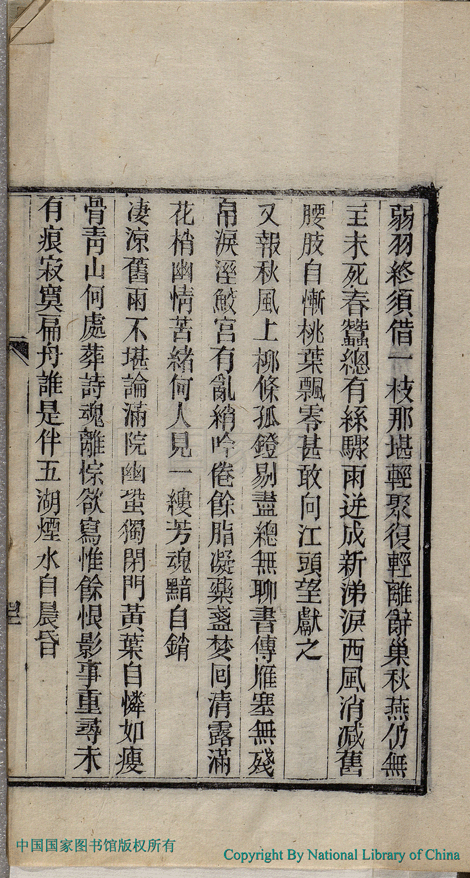 弱羽終須借一枝那堪輕聚復輕離辭巢秋燕仍無
主未死春蠶總有絲驟雨迸成新涕淚西風消减舊
腰肢自慚桃葉飄零甚敢向江頭望獻之
又報秋風上柳條孤鐙剔盡總無聊書傳雁塞無殘
帛淚溼鮫宮有亂綃吟倦餘脂凝藥盞夢回清露滿
花梢幽情苦緒何人見一縷芳魂黯自銷
凄涼舊雨不堪論滿院幽蛩獨閉門黃葉自憐如瘦
骨靑山何處葬詩魂離悰欲寫惟餘恨影事重尋未
有痕寂寞扁舟誰是伴五湖煙水自晨昏
中国国家图书馆版权所有
Copyright By National Library of China